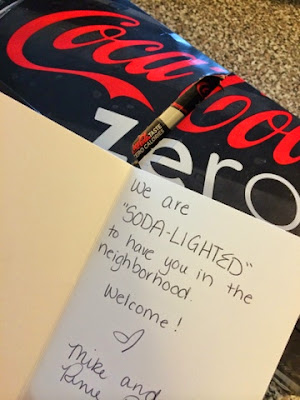 Coca-Cola
zero
Coca-Cola
TASTE
ZERO CALORIES
We are
"SODA-LIGHTED"
to have you in the
neighborhood.
Welcome!
Mike and